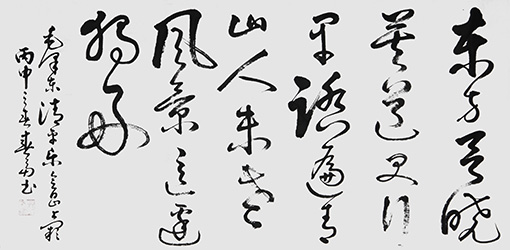 东方欲晓
莫道君行
早踏遍青
山人未老
风景这边
独好
毛泽东清平乐会昌
丙申